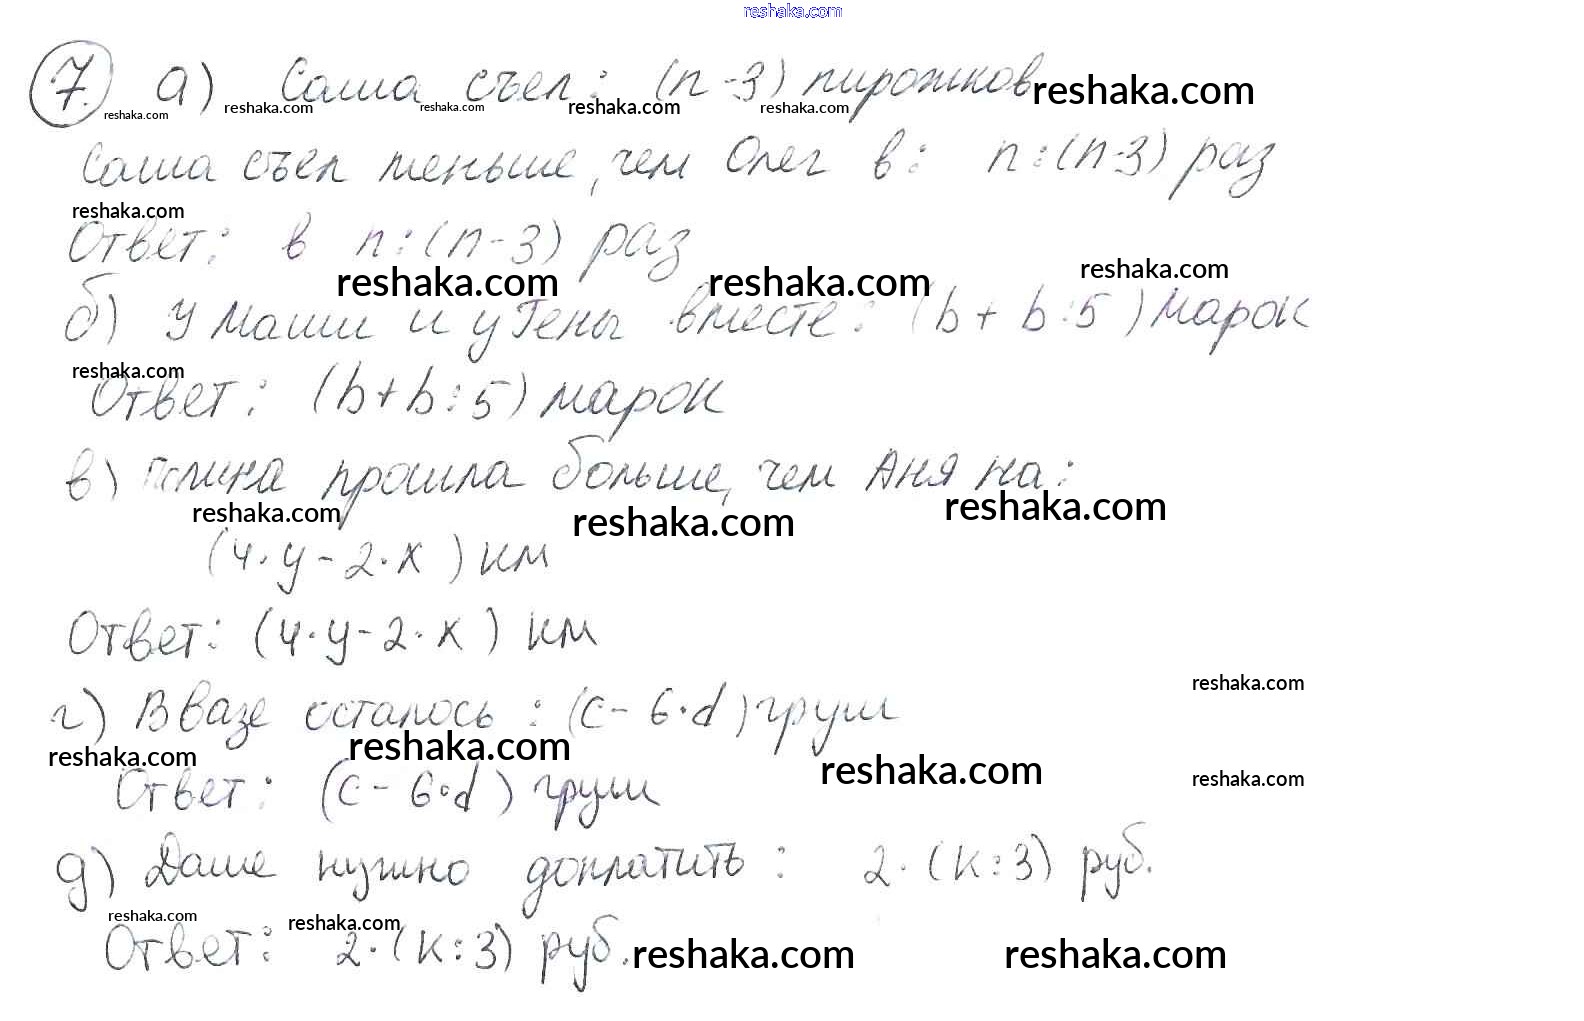 reshaka.com
7. а) Саша съел: (n-3) пирожков reshaka.com
reshaka.com reshaka.com reshaka.com reshaka.com reshaka.com
Саша съел меньше, чем Олег в: n:(n-3) раз
reshaka.com
Ответ: в n:(n-3) раз
reshaka.com reshaka.com reshaka.com
б) У Маши и у Гены вместе: (b+ b:5) марок
reshaka.com
Ответ: (b+b:5) марок
в) Полина прошла больше, чем Аня на:
reshaka.com reshaka.com reshaka.com
(4·y-2·x) км
Ответ: (4·y-2·x) км
reshaka.com
г) В вазе осталось: (c-6·d) груш
reshaka.com reshaka.com reshaka.com reshaka.com
Ответ: (c-6·d) груш
д) Даше нужно доплатить: 2·(k:3) руб.
reshaka.com reshaka.com
Ответ: 2·(k:3) руб. reshaka.com reshaka.com